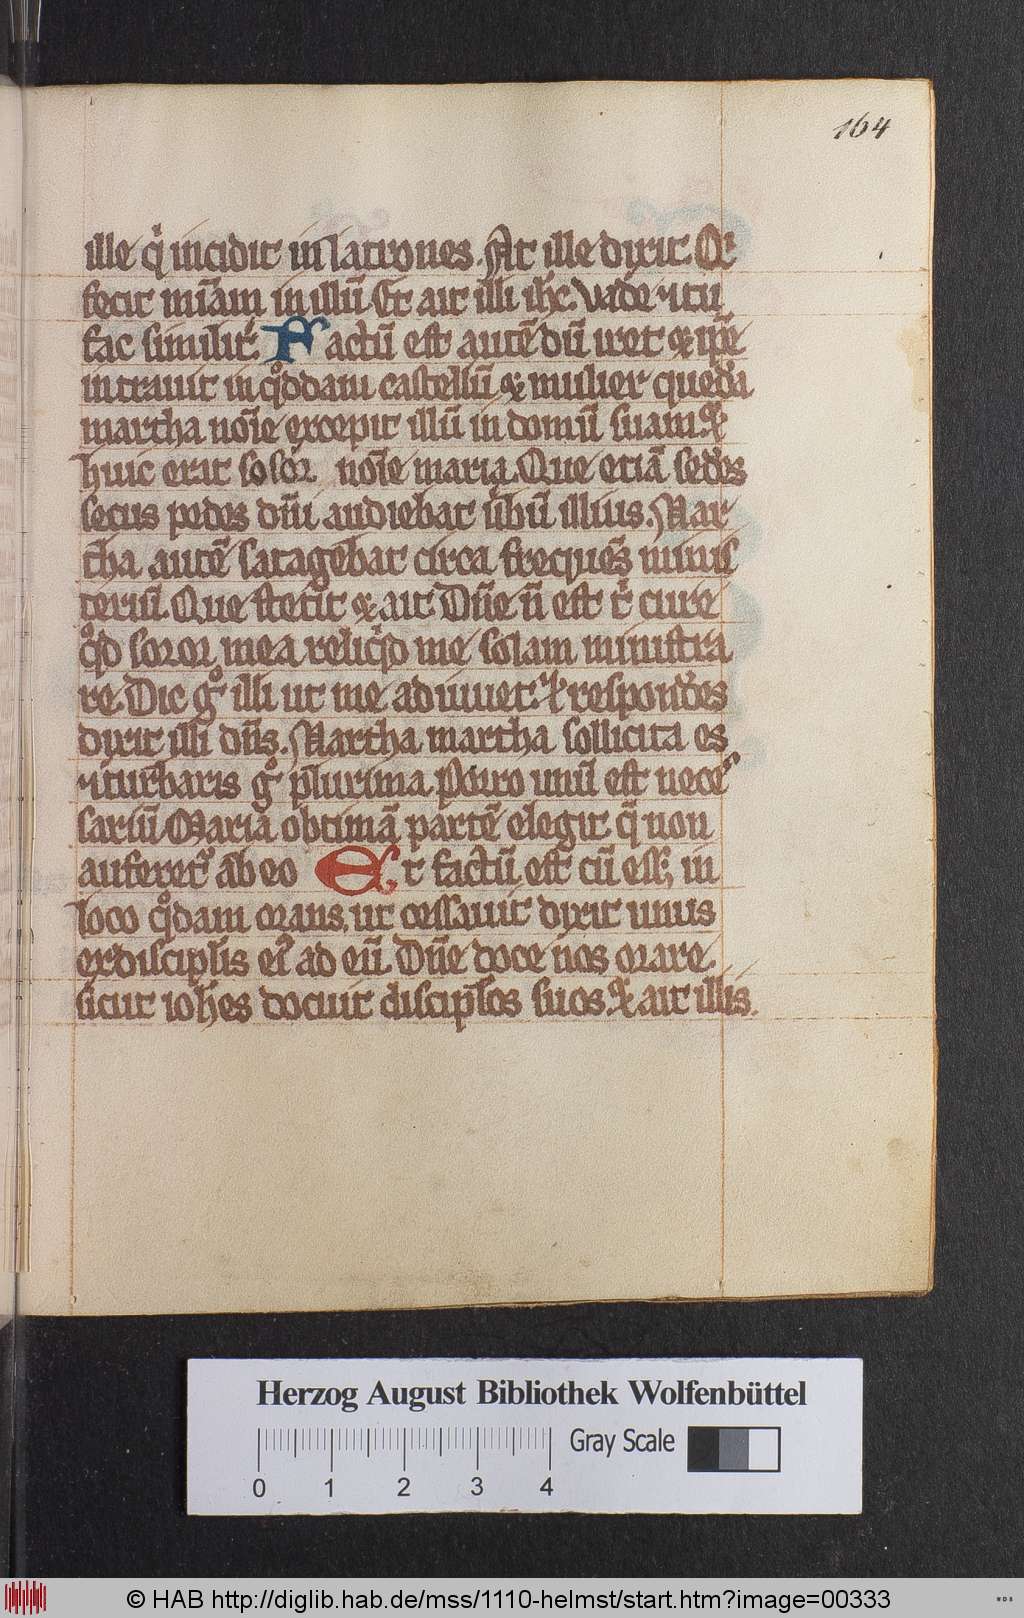 164
ille q͛ incidit in latrones. At ille dixit. Qi
fecit mīam in illū Et ait illi ih̄c. Vade ⁊ tu
fac similit͛. Factū est autē dū iret ⁊ ip̄e
intrauit in qͦddam castellū ⁊ mulier quedā
martha noīe excepit illū in domū suam ⁊
huic erat soror noīe maria. Que etiā sedēs
secus pedes dn̄i audiebat ūbū illius. Mar
tha autē satagebat circa frequēs minis
teriū. Que stetit ⁊ ait. Dn̄e ñ est t͛ cure
qͦd soror mea reliq͛d me solam ministra
re. Dic gͦ illi ut me adiuuet. ⁊ respondēs
dixit illi dn̄s. Martha martha sollicita es
⁊ turbaris gͦ plurima. Porro unū est nece
sariū. Maria obtimā partē elegit. q̄ non
auferet᷑ ab eo Et factū est cū ess; in
loco qͦdam orans, ut cessauit dixit unus
ex discipl̄is ei᷒ ad eū. Dn̄e doce nos orare
sicut ioh̄es docuit discipl̄os suos. ⁊ ait illis.
Herzog August Bibliothek Wolfenbüttel
Gray Scale
0 1 2 3 4
© HAB http://diglib.hab.de/mss/1110-helmst/start.htm?image=00333